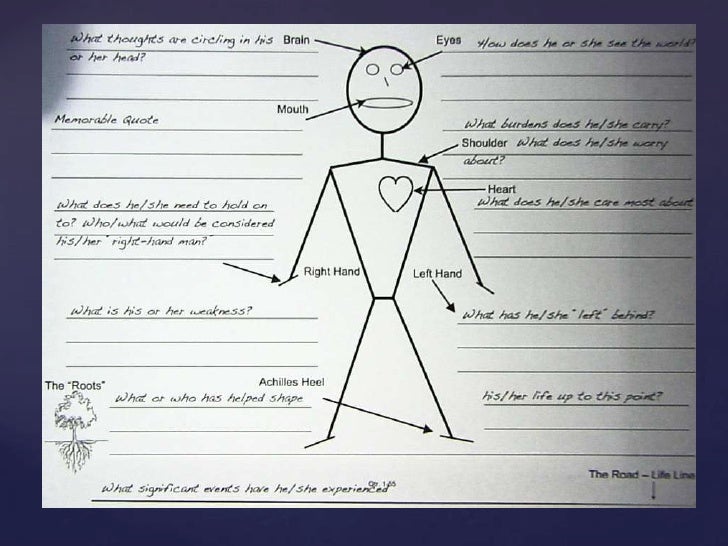 What thoughts are circling in his
or her head?
Brain
Eyes
How does he or she see the world?
Mouth
Memorable Quote
What burdens does he/she carry?
Shoulder What does he/she worry
about?
Heart
What does he/she care most about
What does he/she need to hold on
to? Who/what would be considered
his/her "right-hand man?"
Right Hand
Left Hand
What is his or her weakness?
What has he/she "left" behind?
The "Roots"
Achilles Heel
What or who has helped shape
his/her life up to this point?
The Road – Life Line
What significant events have he/she experienced